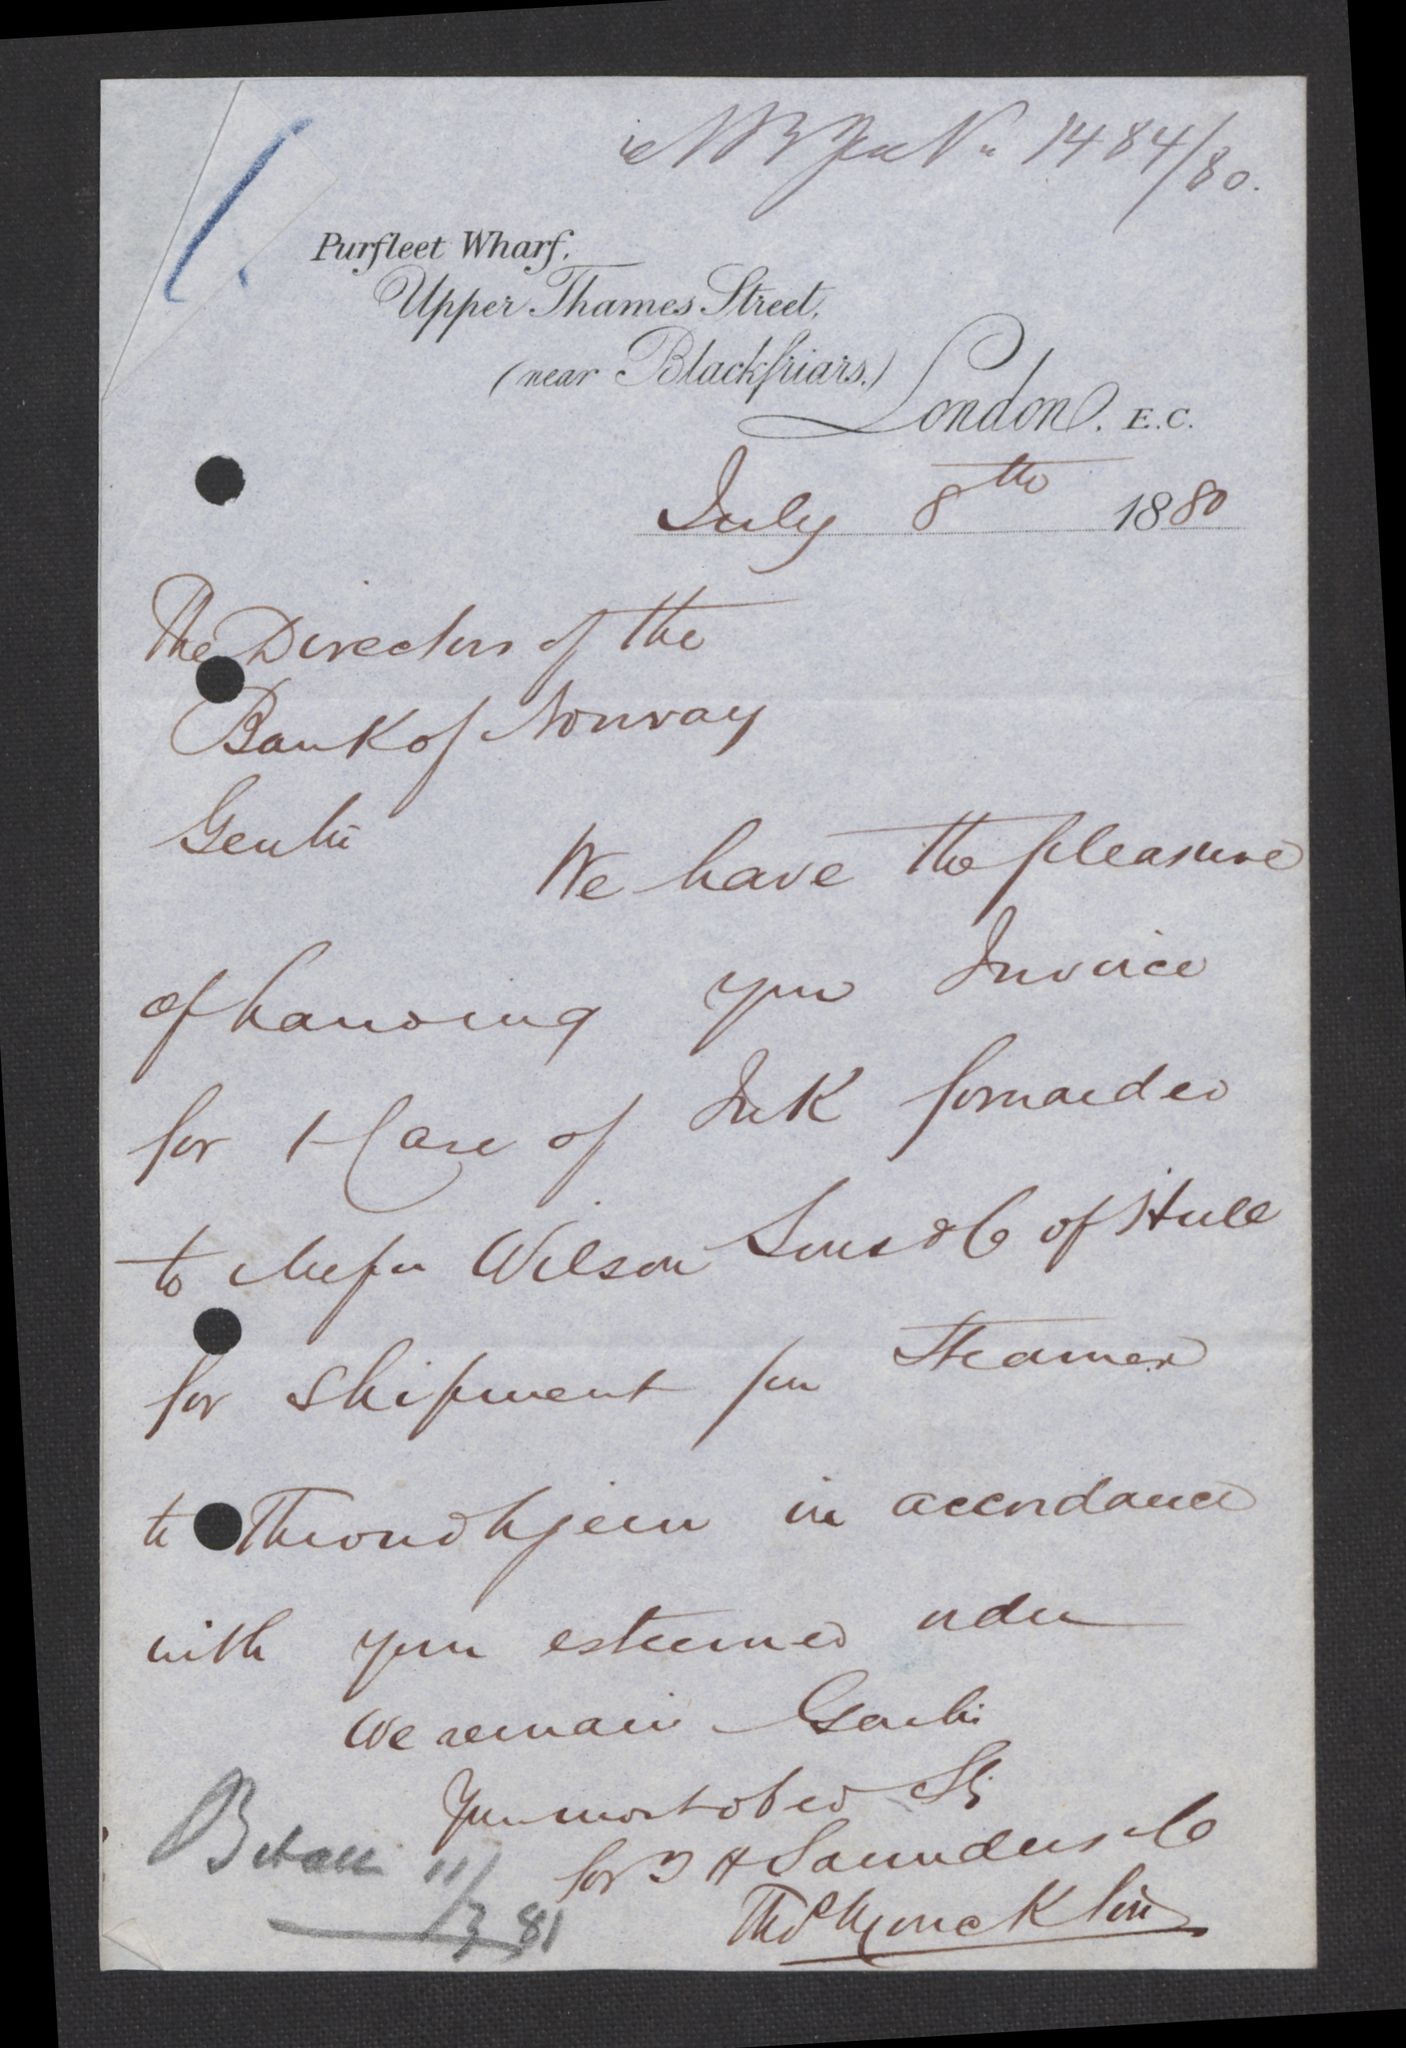 NB Jr No 1484/80.
Purfleet Wharf,
Upper Thames Street,
(near Blackfriars.)
London. E.C.
July 8th 1880
The Directors of the
Bank of Norway
Gentn
We have the pleasure
of handing you Invoice
for 1 Case of Ink forwarded
to Messrs Wilson Sons & Co of Hull
for shipment per Steamer
to Throndhjem in accordance
with your esteemed order
We remain Gentn
Your most obed St
for T H Saunders & Co
Thos Moncklin
Betalt 11/3 81